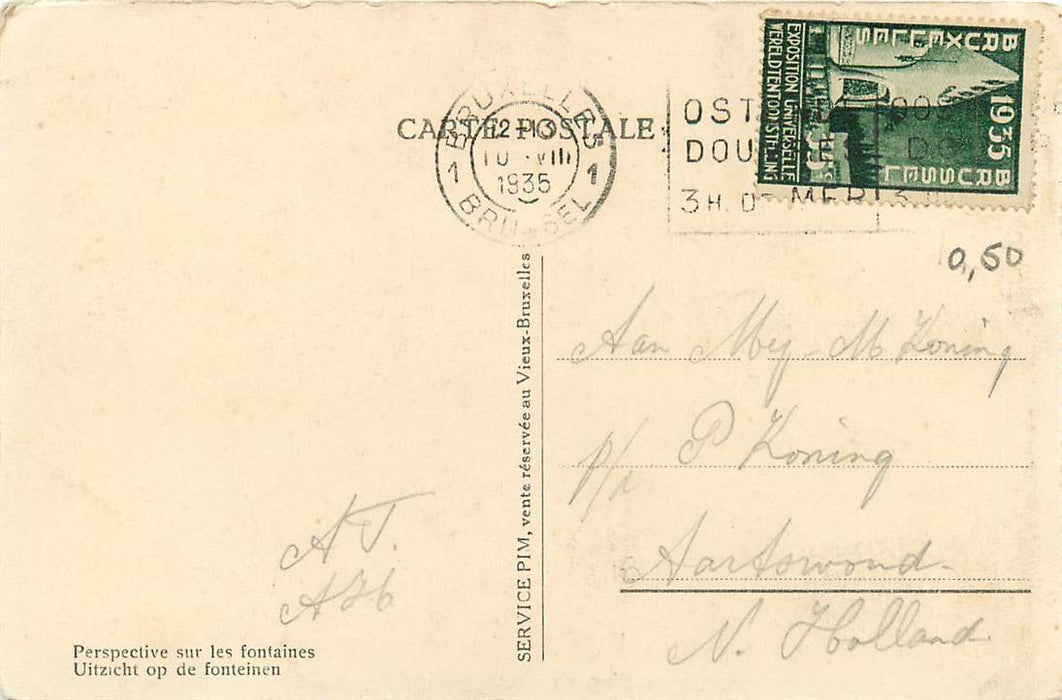 CARTE POSTALE
BRUXELLES
12-13
10 · VIII
1935
1 1
BRUSSEL
OST
DOU
3 H. D MER 3
BRUXELLES
1935
BRUSSEL
EXPOSITION UNIVERSELLE
WERELDTENTOONSTELLING
0,50
SERVICE PIM, vente réservée au Vieux-Bruxelles
Aan Mej - M Koning
p/a P Koning
Aartswoud -
N. Holland
A T.
Perspective sur les fontaines
Uitzicht op de fonteinen